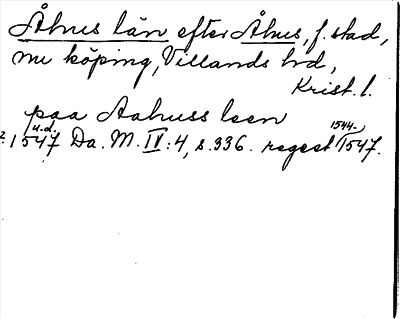 Åhus län efter Åhus, f. stad,
nu köping, Villands hd,
Krist. l.
paa Aahuss leen
u.d. 1544-
1547 Da. M. IV:4, s. 336. regest 1547.